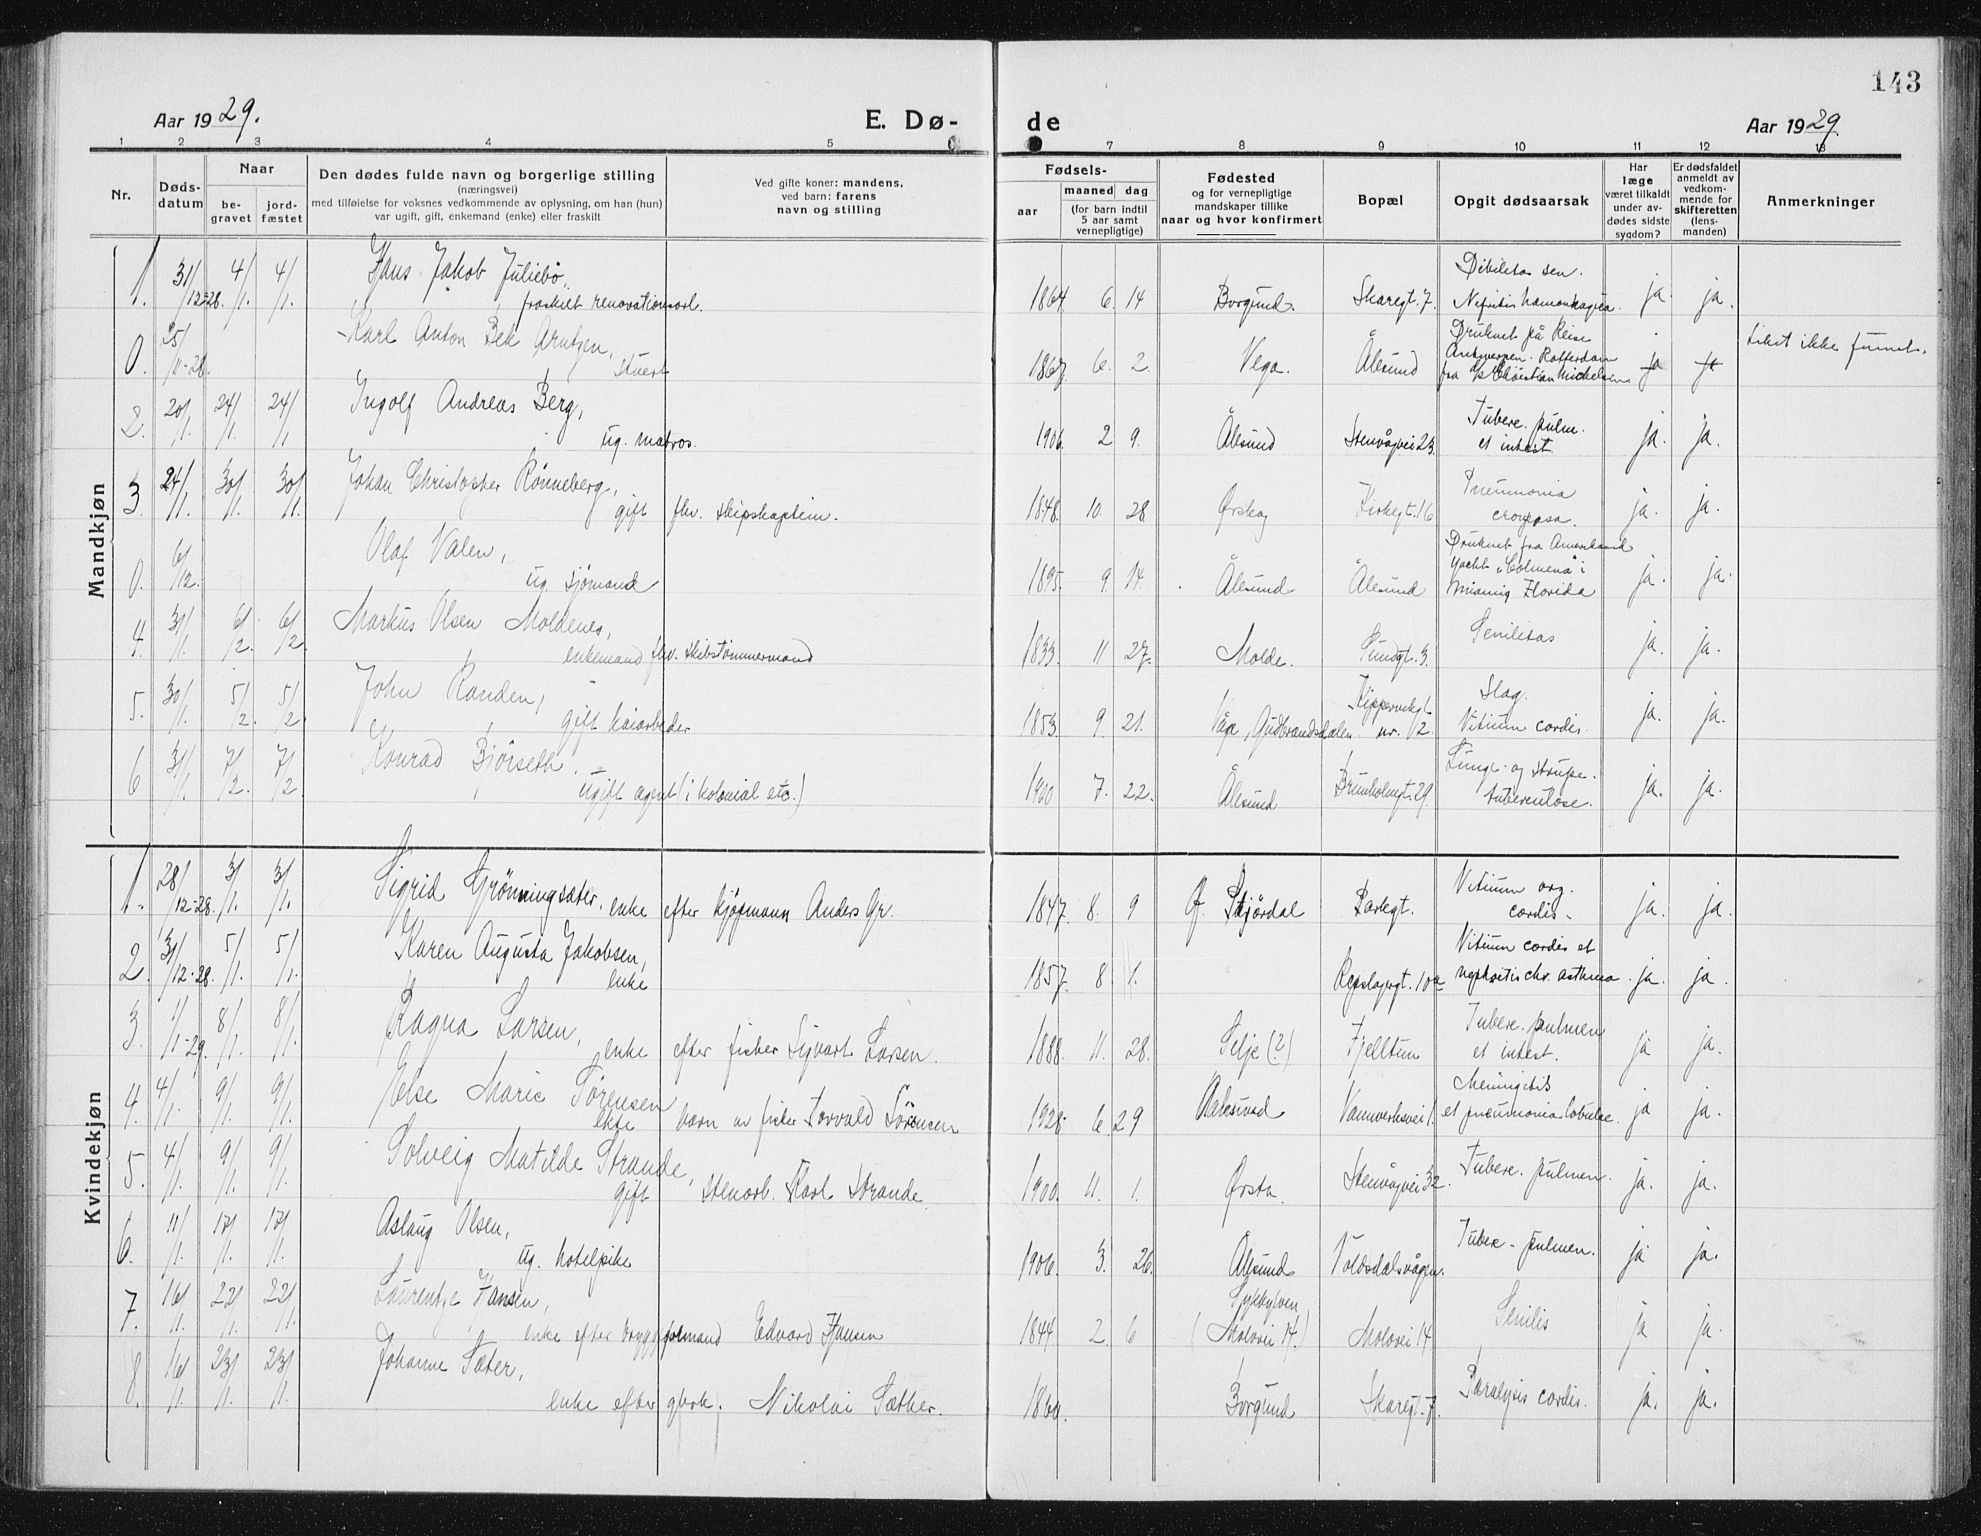 143
Aar 1929.
E. Dø-
de
Aar 1929.
1 2 3 4 5 7 8 9 10 11 12 13
Nr.
Døds-
datum
Naar
be-
gravet
jord-
fæstet
Den dødes fulde navn og borgerlige stilling
(næringsvei)
med tilføielse for voksnes vedkommende av oplysning, om han (hun)
var ugift, gift, enkemand (enke) eller fraskilt
Ved gifte koner: mandens,
ved barn: farens
navn og stilling
Fødsels-
aar
maaned dag
(for barn indtil
5 aar samt
vernepligtige)
Fødested
og for vernepligtige
mandskaper tillike
naar og hvor konfirmert
Bopæl
Opgit dødsaarsak
Har
læge
været tilkaldt
under av-
dødes sidste
sygdom?
Er dødsfaldet
anmeldt av
vedkom-
mende for
skifteretten
(lens-
manden)
Anmerkninger
Mandkjøn
1. 31/12-28. 4/1. 4/1. Hans Jakob Juliebø,
fraskilt renovationsarb.
1864 6. 14 Borgund. Skaregt. 7 Debilitas sen.
ja. ja.
0. 25/11-28. Karl Anton Bek Arntzen,
Stuert
1867. 6. 2. Vega. Ålesund Druknet på Reise
Antwerpen. Rotterdam
fra d/s Christian Michelsen ja ja
Liket ikke funnet.
2. 20/1. 24/1. 24/1 Ingolf Andreas Berg,
ug. matros.
1906. 2 9. Ålesund Stenvågvei 23. Tuberc. pulm.
et intest. ja. ja.
3. 24/1. 30/1. 30/1. Johan Christopher Rönneberg,
gift fhv. skipskaptein.
1848. 10. 28. Ørskog Kirkegt. 16 Pneumonia
crouposa. ja. ja.
0. 6/12. Olaf Valen,
ug. sjømand
1895. 9. 14. Ålesund Ålesund Druknet fra Amerikansk
Yacht "Colmena" i
Miami Florida ja. ja.
4. 31/1. 6/2. 6/2. Markus Olsen Moldenes,
enkemand fhv. skibstömmermand
1833. 11 27. Molde. Sundgt. 3. Senilitas ja. ja.
5. 30/1. 5/2. 5/2. John Randen,
gift kaiarbeider
1853. 9. 21. Våga, Gudbrandsdalen. nr. 12. Slag.
Vitium cordis. ja. ja.
6 31/1. 7/2. 7/2. Konrad Bjørseth.
ugift agent (i kolonial etc.)
1900 7. 22. Ålesund Brunholmgt. 29. Lunge- og Strupe-
tuberculose. ja. ja.
Kvindekjøn
1. 28/12-28. 3/1. 3/1. Sigrid Grönningsæter, enke efter kjöpmann Anders Gr.
1847. 8. 9 Ø. Stjördal Parkgt. Vitium org.
cordis- ja. ja.
2. 31/12-28. 5/1. 5/1. Karen Augusta Jakobsen,
enke
1857. 8. 1. Repslagergt. 10a Vitium cordis et
nephritis chr. asthma. ja. ja.
3. 1/1-29. 8/1. 8/1. Ragna Larsen,
enke efter fisker Sigvart Larsen.
1888. 11. 28. Selje (?) Fjelltun Tuberc. pulmen
et intest. ja ja.
4. 4/1. 9/1. 9/1. Else Marie Sørensen
ekte barn av fisker Torvald Sörensen
1928. 6. 29 Aalesund Meningitis
et pneumonia lobulae. ja ja.
5. 4/1. 9/1. 9/1. Solveig Matilde Strande,
gift stenarb. Karl Strande.
1900. 11. 1. Ørsta. Stenvågvei 32. Tuberc. pulmen. ja. ja.
6. 11/1. 17/1. 17/1. Aslaug Olsen,
ug. hotelpike
1906. 3. 26. Ålesund Voldsdalsvågen. Tuberc- pulmen. ja ja.
7. 16/1. 22/1. 22/1. Laurentze Hansen,
enke efter bryggeformand Edvard Hansen
1844. 2. 6 Sykkylven
(Molovei 14.) Molovei 14 Senilis ja ja.
8. 16/1. 23/1. 23/1. Johanne Sæter,
enke efter gbrk. Nikolai Sæther.
1860. Borgund Skaregt. 7. Paralysis cordis. ja. ja.